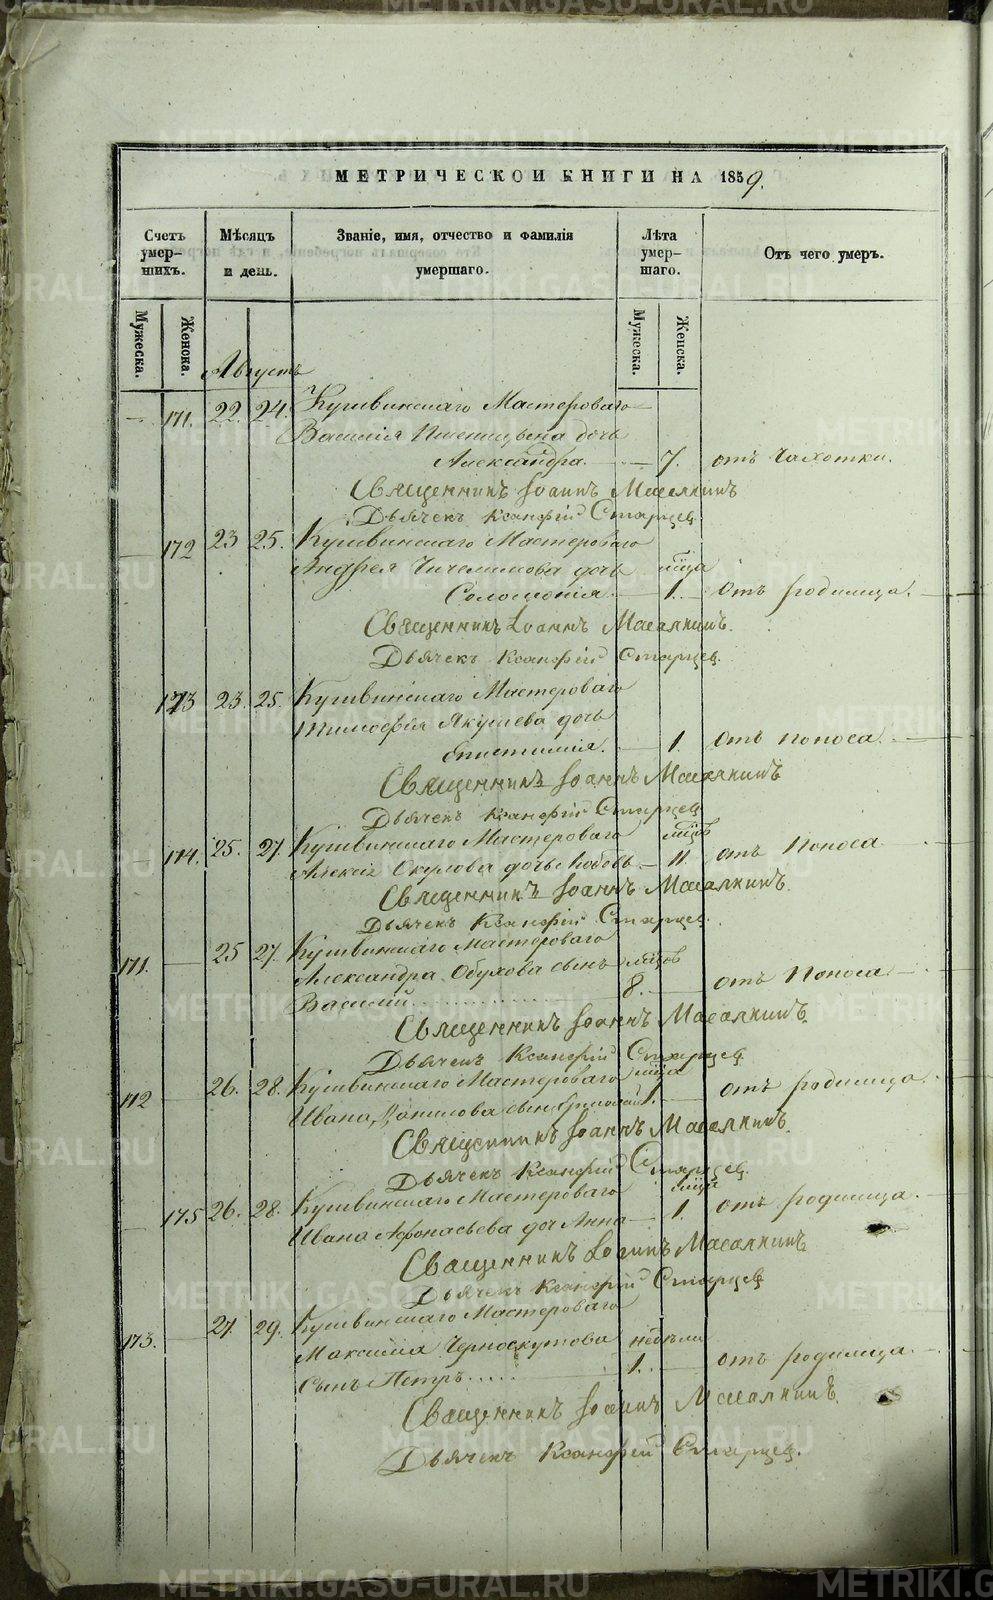 МЕТРИЧЕСКОЙ КНИГИ НА 1859.
Счетъ умер-шихъ.
Мѣсяцъ и день.
Званіе, имя, отчество и фамилія умершаго.
Лѣта умер-шаго.
Отъ чего умеръ.
Мужеска.
Женска.
Мужеска.
Женска.
Августъ
— 171. 22. 24. Кушвинскаго Мастероваго
Василія Пшеницына дочь
Александра. — 7. отъ Чахотки.
Священникъ Іоаннъ Масалкинъ
Дьячекъ Ксанфій Старцев.
— 172 23 25. Кушвинскаго Мастероваго
Андрея дочь мѣсца
Соломонія — 1. — отъ родимца.
Священникъ Іоаннъ Масалкинъ.
Дьячекъ Ксанфій Старцев.
173 23. 25. Кушвинскаго Мастероваго
Тимофѣя Якушева дочь
Епистимія. — 1. отъ поноса
Священникъ Іоаннъ Масалкинъ
Дьячекъ Ксанфій Старцев
— 174. 25. 27 Кушвинскаго Мастероваго мѣсцовъ
Алексія Окулова дочь Любовь — 11 отъ Поноса
Священникъ Іоаннъ Масалкинъ.
Дьячекъ Ксанфій Старцев.
171. — 25 27. Кушвинскаго Мастероваго
Александра Обухова сынъ мѣсцовъ
Василій 8. — отъ Поноса
Священникъ Іоаннъ Масалкинъ.
Дьячекъ Ксанфій Старцев
172 — 26. 28. Кушвинскаго Мастероваго мѣсца
Ивана Данилова сынъ 1. — отъ родимца
Священникъ Іоаннъ Масалкинъ.
Дьячекъ Ксанфій Старцев.
— 175 26. 28. Кушвинскаго Мастероваго мѣсца
Ивана Афонасьева доч Анна — 1. отъ родимца
Священникъ Іоаннъ Масалкинъ
Дьячекъ Ксанфій Старцев
173. — 27. 29. Кушвинскаго Мастероваго
Максима Черноскутова недѣли
Сынъ Петръ 1. — отъ родимца
Священникъ Іоаннъ Масалкинъ.
Дьячекъ Ксанфій Старцев.
METRIKI.GASO-URAL.RU